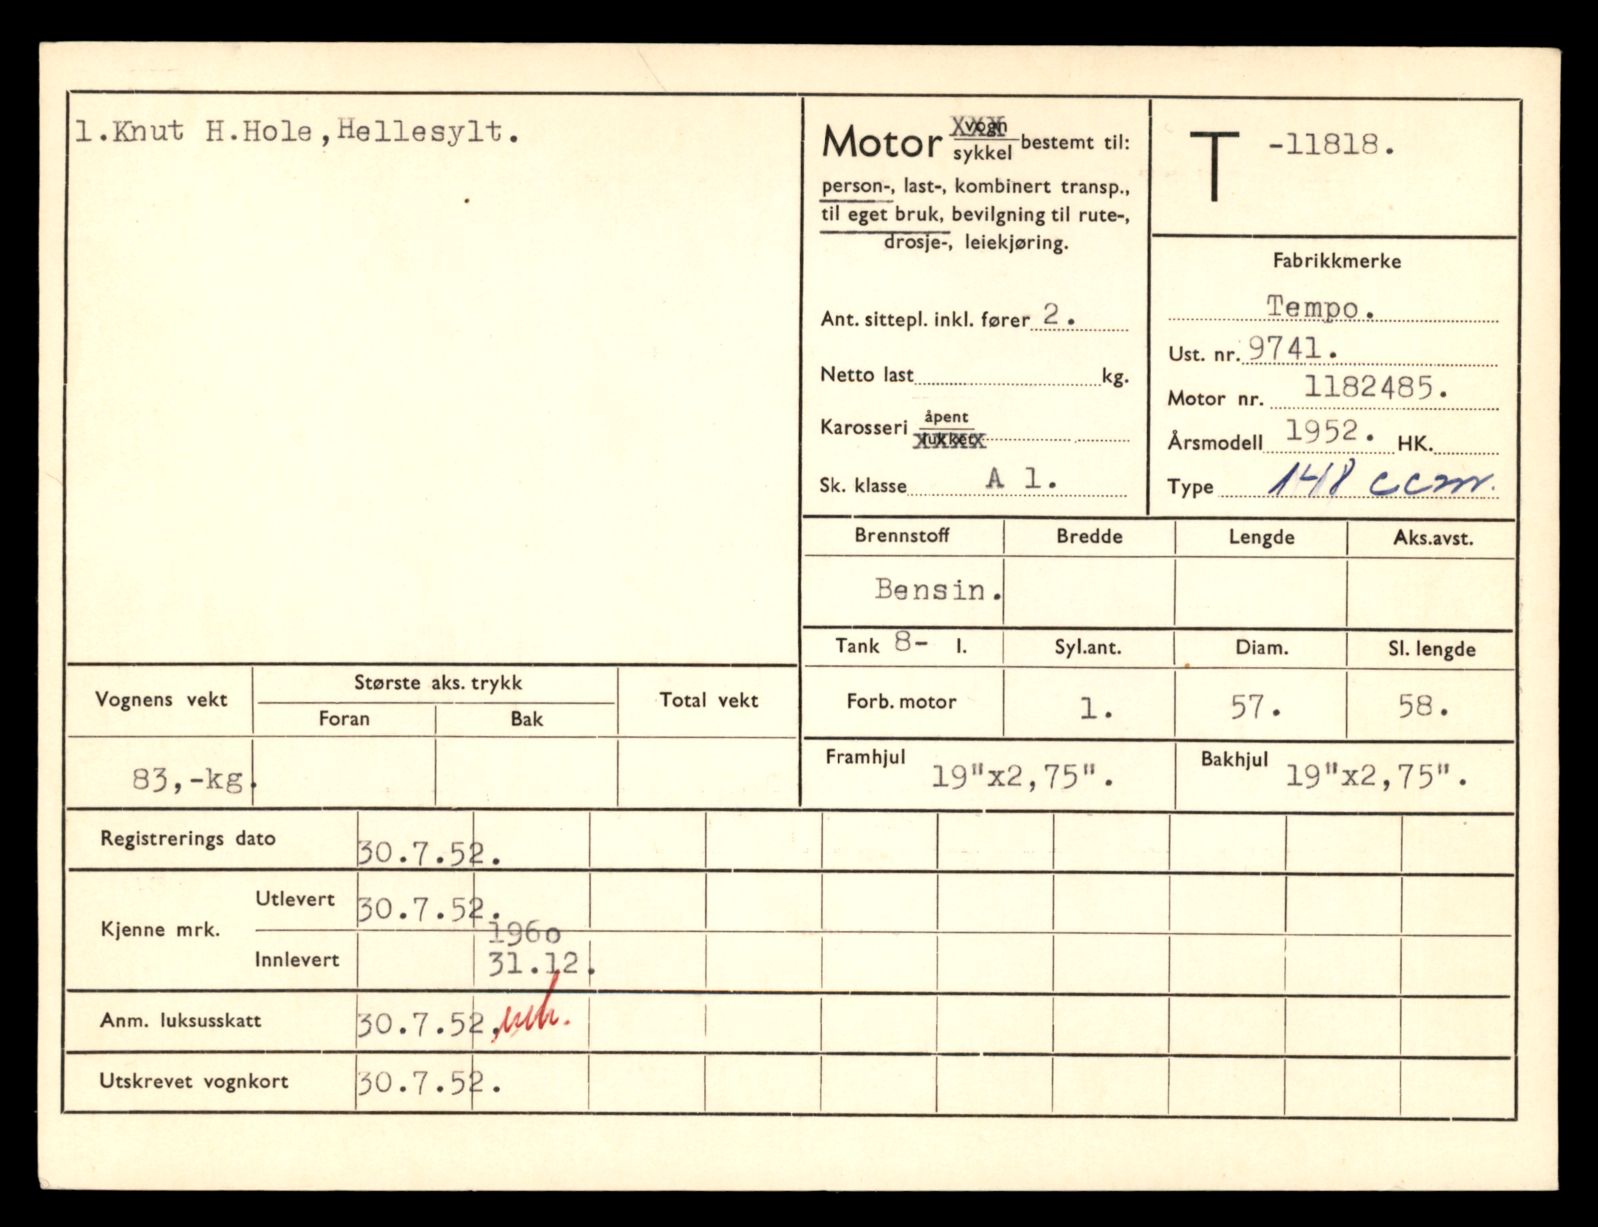 1.Knut H.Hole,Hellesylt.
Motor vogn
sykkel bestemt til:
person-, last-, kombinert transp.,
til eget bruk, bevilgning til rute-,
drosje-, leiekjøring.
Ant. sittepl. inkl. fører 2.
Netto last kg.
Karosseri åpent
lukket
Sk. klasse A 1.
T -11818.
Fabrikkmerke
Tempo.
Ust. nr. 9741.
Motor nr. 1182485.
Årsmodell 1952. HK.
Type 148 ccm.
Brennstoff Bredde Lengde Aks.avst.
Bensin.
Tank 8- l. Syl.ant. Diam. Sl. lengde
Forb. motor 1. 57. 58.
Framhjul 19"x2,75". Bakhjul 19"x2,75".
Vognens vekt Største aks. trykk Total vekt
Foran Bak
83,-kg.
Registrerings dato 30.7.52.
Kjenne mrk. Utlevert 30.7.52.
1960
Innlevert 31.12.
Anm. luksusskatt 30.7.52.
Utskrevet vognkort 30.7.52.